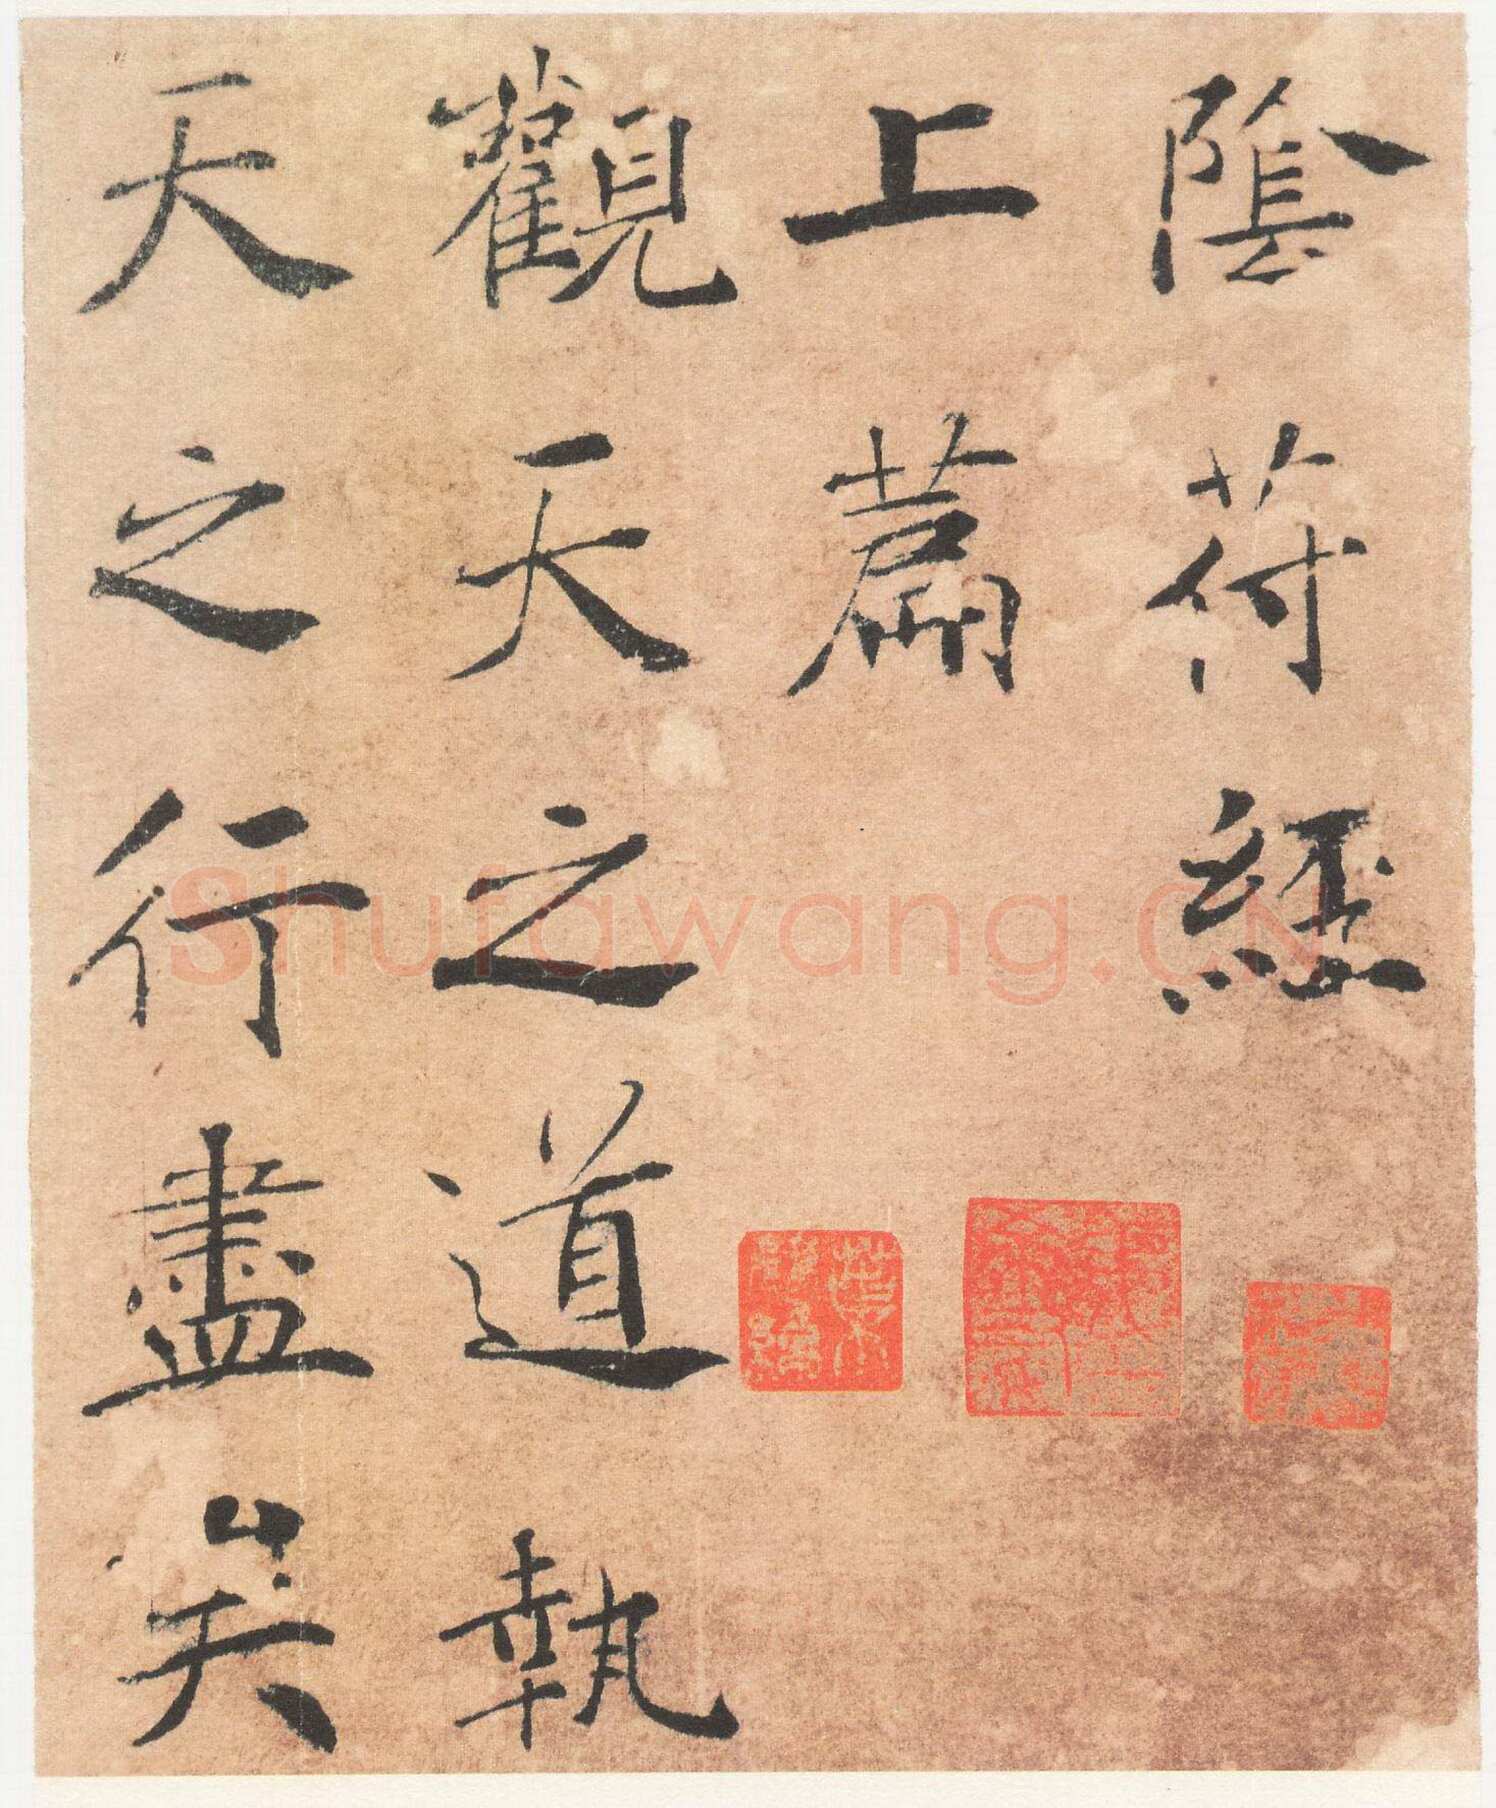 隂苻經
上萹
觀天之道執
天之行盡矣
Shufawang.CN